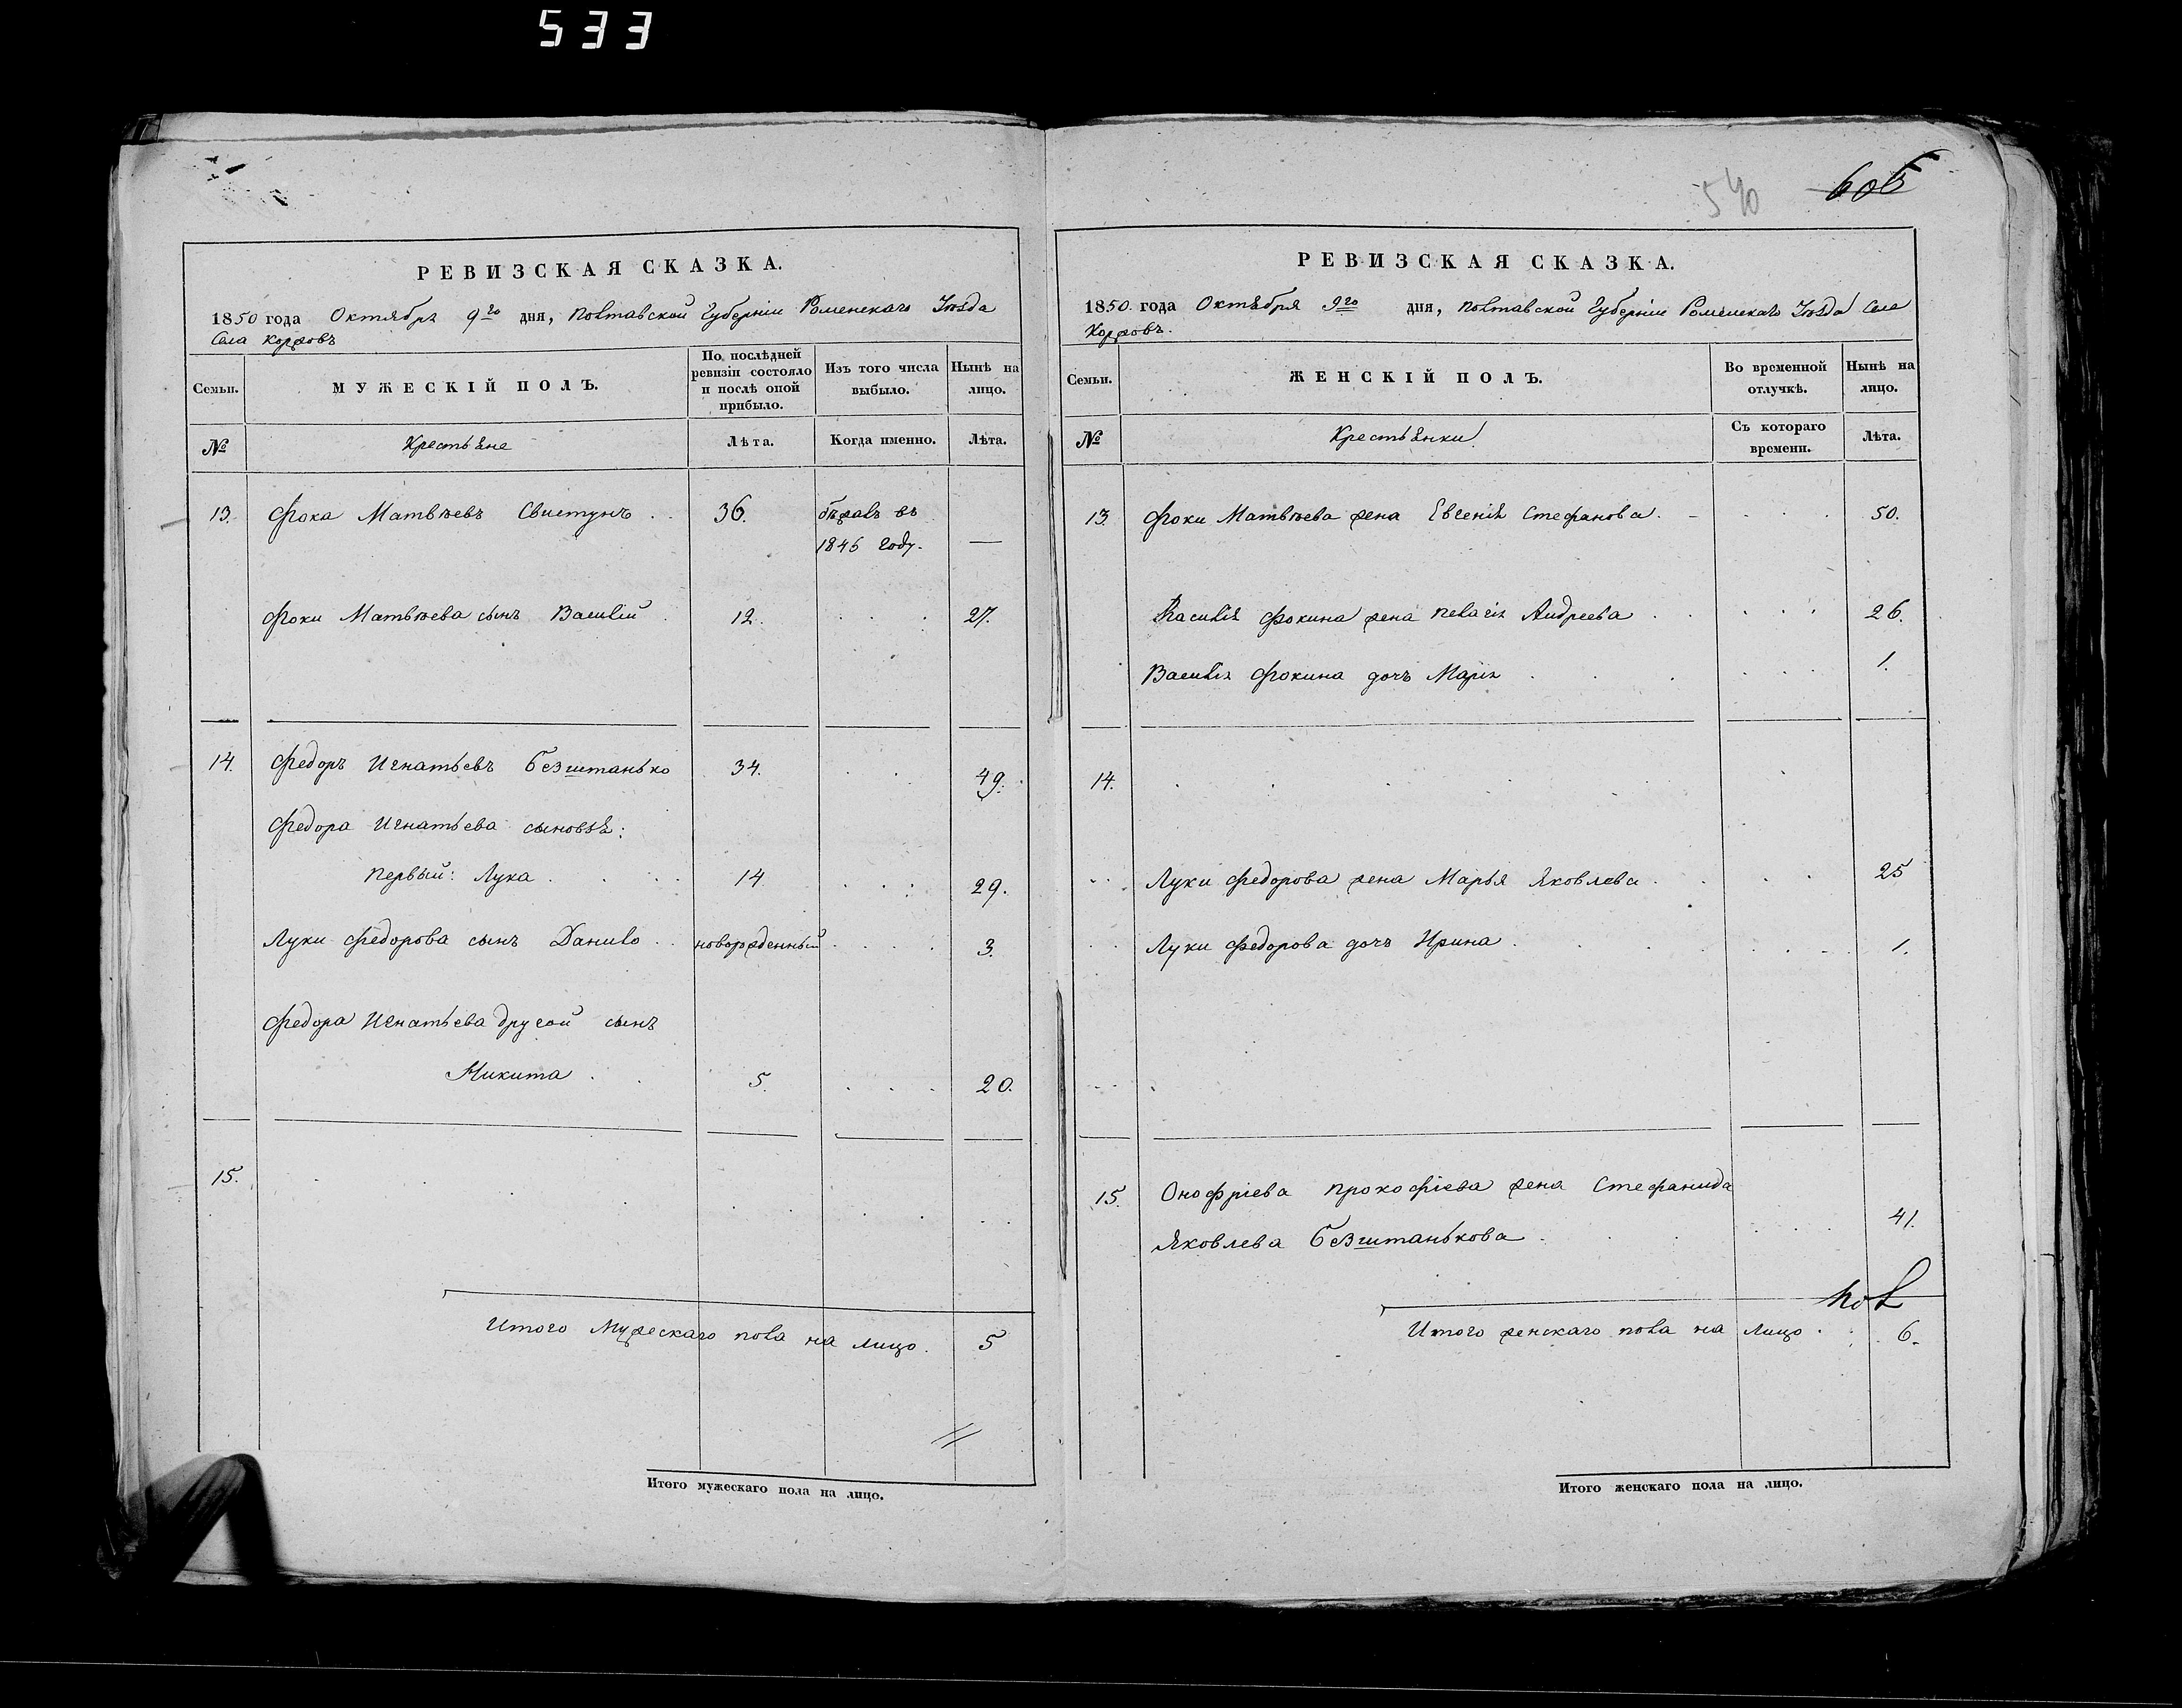 533
540
605
РЕВИЗСКАЯ СКАЗКА.
1850 года Октября 9го дня, Полтавской Губерніи Роменскаго Уѣзда
Села Коржовъ
Семьи. МУЖЕСКІЙ ПОЛЪ. По послѣдней ревизіи состояло и послѣ оной прибыло. Изъ того числа выбыло. Нынѣ на лицо.
№ Крестьяне Лѣта. Когда именно. Лѣта.
13. Фока Матвѣевъ Свистунъ . 36. бѣжалъ въ
1845 году. —
Фоки Матвѣева сынъ Василій . 12. 27.
14. Федоръ Игнатьевъ Безштанько 34. 49.
Федора Игнатьева сыновья:
первый: Лука . 14 29.
Луки Федорова сынъ Данило . . новорожденный 3.
Федора Игнатьева другой сынъ
Никита . 5. 20.
15.
Итого Мужескаго пола на лицо. 5
Итого мужескаго пола на лицо.
РЕВИЗСКАЯ СКАЗКА.
1850. года Октября 9го дня, Полтавской Губерніи Роменскаго Уѣзда Села
Коржовъ.
Семьи. ЖЕНСКІЙ ПОЛЪ. Во временной отлучкѣ. Нынѣ на лицо.
№ Крестьянки Съ котораго времени. Лѣта.
13. Фоки Матвѣева жена Евгенія Стефанова. 50.
Василія Фокина жена Пелагія Андреева 26.
Василія Фокина дочь Марія 1.
14.
Луки Федорова жена Марья Яковлева 25
Луки Федорова дочь Ирина . 1.
15. Онофріева Прокофіева жена Стефанида
Яковлева Безштанькова . 41.
Итого женскаго пола на лицо . 6.
Итого женскаго пола на лицо.